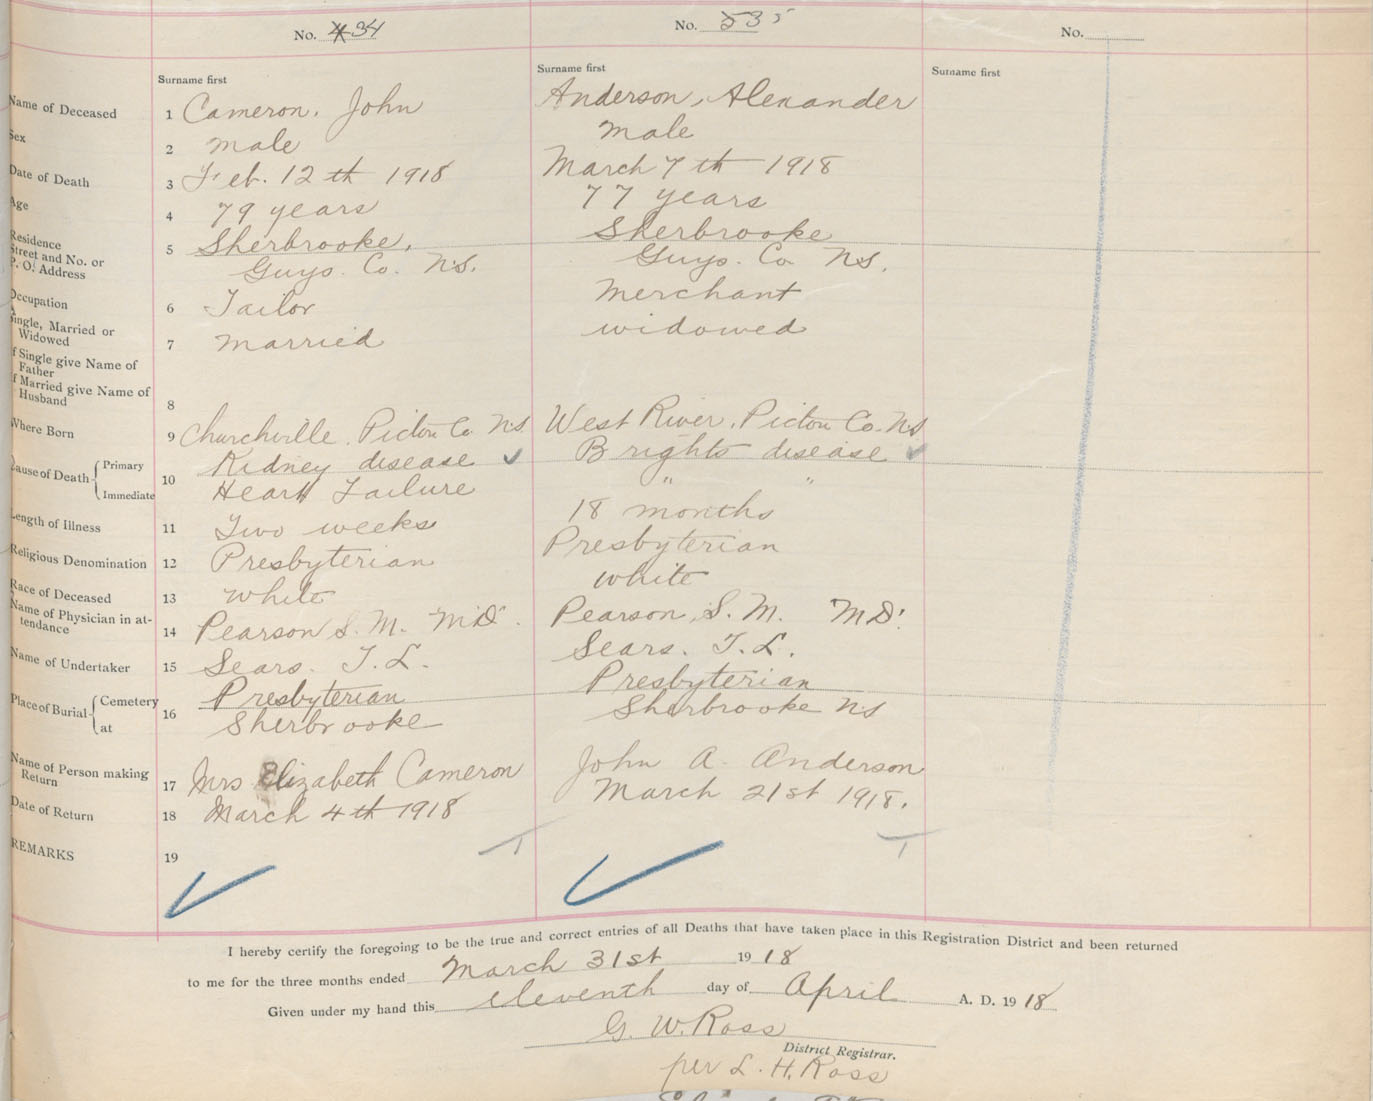 No. 434
No. 535
No.
Surname first
Surname first
Surname first
Name of Deceased 1 Cameron, John
Anderson, Alexander
Sex 2 male
male
Date of Death 3 Feb. 12th 1918
March 7th 1918
Age 4 79 years
77 years
Residence
Street and No. or
P. O. Address
5 Sherbrooke,
Guys. Co. N.S.
Sherbrooke
Guys. Co N.S.
Occupation 6 Tailor
Merchant
Single, Married or
Widowed
7 married
widowed
If Single give Name of
Father
If Married give Name of
Husband
8
Where Born 9 Churchville, Pictou Co N.S
West River, Pictou Co. N.S
Cause of Death { Primary
Immediate
10 Kidney disease
Heart Failure
Brights disease
" "
Length of Illness 11 Two weeks
18 months
Religious Denomination 12 Presbyterian
Presbyterian
Race of Deceased 13 white
white
Name of Physician in at-
tendance
14 Pearson S. M. "M.D".
Pearson, S. M. "M.D".
Name of Undertaker 15 Sears. T. L.
Sears. T. L.
Place of Burial { Cemetery
at
16 Presbyterian
Sherbrooke
Presbyterian
Sherbrooke N.S
Name of Person making
Return
17 Mrs Elizabeth Cameron
John A. Anderson
Date of Return 18 March 4th 1918
March 21st 1918.
REMARKS 19
I hereby certify the foregoing to be the true and correct entries of all Deaths that have taken place in this Registration District and been returned
to me for the three months ended March 31st 1918
Given under my hand this eleventh day of April A. D. 1918
G. W. Ross
District Registrar.
per L. H. Ross